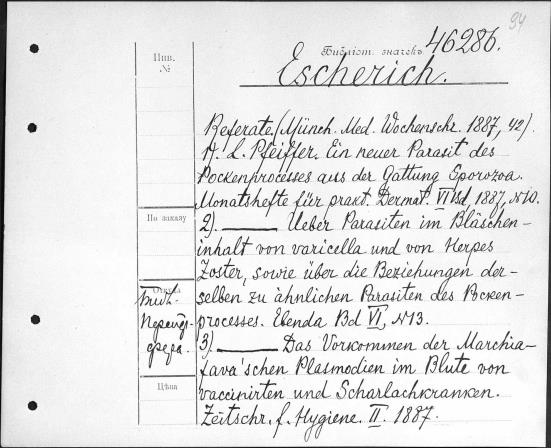 94
Библіот. значекъ 46286.
Escherich.
Инв.
№
Referate. (Münch. Med. Wochenschr. 1887, 42).
A. L. Pfeiffer. Ein neuer Parasit des
Pockenprocesses aus der Gattung Sporozoa.
Monatshefte für prakt. Dermat. VI Bd, 1887, №10.
По заказу
2). ——— Ueber Parasiten im Bläschen-
inhalt von varicella und von Herpes
Zoster, sowie über die Beziehungen der-
selben zu ähnlichen Parasiten des Pocken-
processes. Ebenda Bd VI, №13.
Откуда
Библ.
Пфера.
3). ——— Das Vorkommen der Marchia-
fava'schen Plasmodien im Blute von
vaccinirten und Scharlachkranken.
Zeitschr. f. Hygiene. II. 1887.
Цѣна